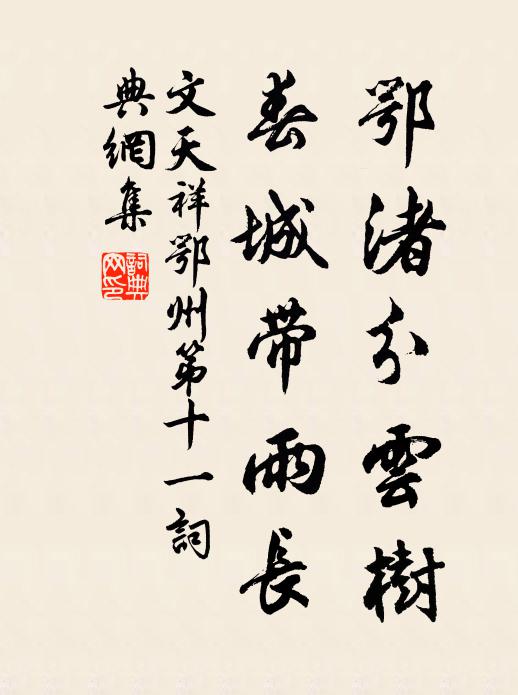 鄂渚分雲樹
春城帶雨長
文天祥鄂州第十一詞
典網集
詞典網印